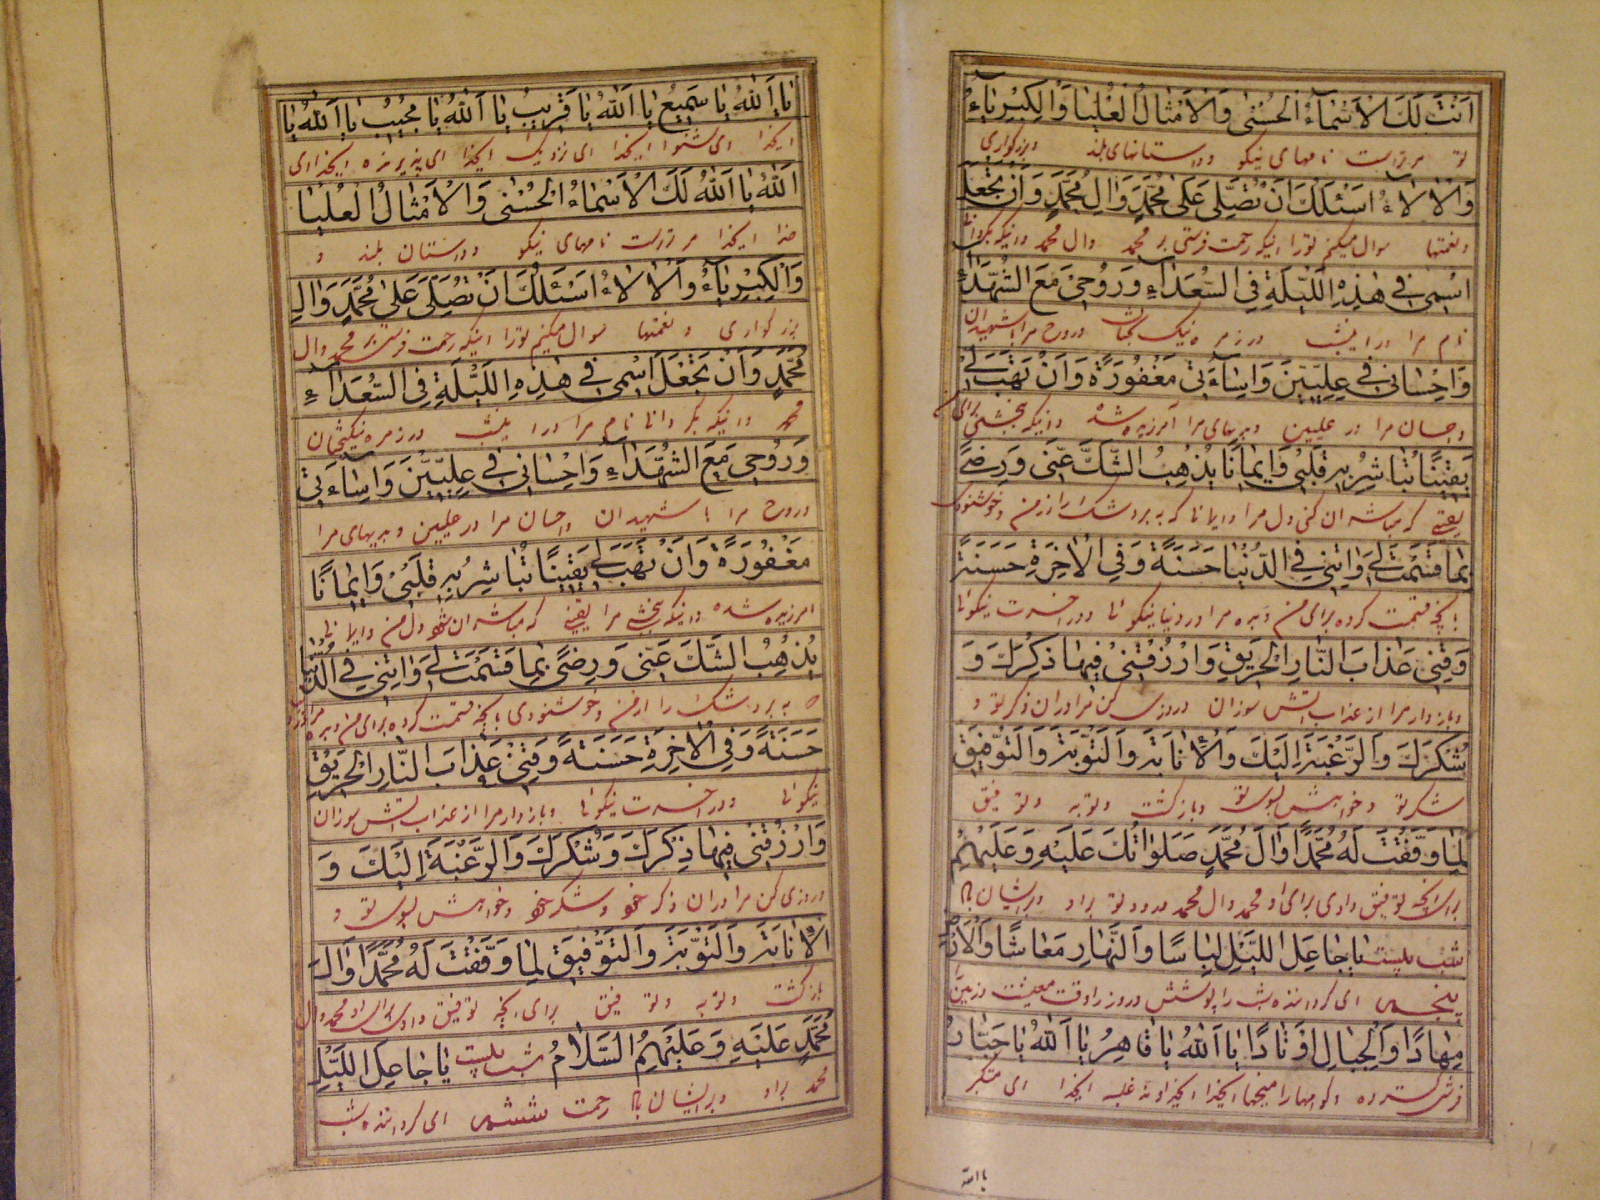 اَنْتَ لَكَ الْاَسْمَآءُ الْحُسْنٰى وَالْاَمْثَالُ الْعُلْيَا وَالْكِبْرِيَآءُ
تو مر تراست نامهای نیکو و داستانهای بلند و بزرگواری
وَالْاٰلَآءُ اَسْئَلُكَ اَنْ تُصَلِّىَ عَلٰى مُحَمَّدٍ وَاٰلِ مُحَمَّدٍ وَاَنْ تَجْعَلَ
و نعمتها سوال میکنم تورا اینکه رحمت فرستی بر محمد وال محمد واینکه بگردانی
اسْمٖى فٖى هٰذِهِ اللَّيْلَةِ فِى السُّعَدَآءِ وَرُوحٖى مَعَ الشُّهَدَآءِ
نام مرا در این شب در زمره نیک بختان وروح مرا با شهیدان
وَاِحْسَانٖى فٖى عِلِّيّٖينَ وَاِسَآءَتٖى مَغْفُورَةً وَاَنْ تَهَبَ لٖى
واحسان مرا در علیین وبدیهای مرا آمرزیده شده واینکه بخشی برای من
يَقٖينًا تُبَاشِرُ بِهٖ قَلْبٖى وَاٖيمَانًا يُذْهِبُ الشَّكَّ عَنّٖى وَرِضًى
یقینی که مباشر ان کنی دل مرا وایمانی که به برد شک را از من وخوشنودی
بِمَا قَسَمْتَ لٖى وَاٰتِنٖى فِى الدُّنْيَا حَسَنَةً وَفِى الْاٰخِرَةِ حَسَنَةً
بانچه قسمت کرده برای من وبده مرا در دنیا نیکوئی ودر اخرت نیکوئی
وَقِنٖى عَذَابَ النَّارِ الْحَرٖيقِ وَارْزُقْنٖى فٖيهَا ذِكْرَكَ وَ
وبازدار مرا از عذاب اتش سوزان وروزی کن مرا دران ذکر تو و
شُكْرَكَ وَالرَّغْبَةَ اِلَيْكَ وَالْاِنَابَةَ وَالتَّوْبَةَ وَالتَّوْفٖيقَ
شکر تو وخواهش بسوی تو وبازگشت وتوبه وتوفیق
لِمَا وَفَّقْتَ لَهُ مُحَمَّدًا وَاٰلَ مُحَمَّدٍ صَلَوٰاتُكَ عَلَيْهِ وَعَلَيْهِمْ
برای انچه توفیق دادی برای او محمد وال محمد درود تو براو وبرایشان باد
شب بیست يَا جَاعِلَ اللَّيْلِ لِبَاسًا وَالنَّهَارِ مَعَاشًا وَالْاَرْضِ
پنجم ای گرداننده شب را پوشش وروز را وقت معیشت وزمین را
مِهَادًا وَالْجِبَالِ اَوْتَادًا يَا اَللّٰهُ يَا قَاهِرُ يَا اَللّٰهُ يَا جَبَّارُ
فرش گسترده وکوهها را میخها ایخدا ایخداوند غلبه ایخدا ای متکبر
یا الله
يَا اَللّٰهُ يَا سَمٖيعُ يَا اَللّٰهُ يَا قَرٖيبُ يَا اَللّٰهُ يَا مُجٖيبُ يَا اَللّٰهُ يَا
ایخدا ای شنوا ایخدا ای نزدیک ایخدا ای پذیرنده ایخدا ای
اَللّٰهُ يَا اَللّٰهُ لَكَ الْاَسْمَاءُ الْحُسْنٰى وَالْاَمْثَالُ الْعُلْيَا
خدا ایخدا مر تراست نامهای نیکو و داستان بلند و
وَالْكِبْرِيَآءُ وَالْاٰلَاءُ اَسْئَلُكَ اَنْ تُصَلِّىَ عَلٰى مُحَمَّدٍ وَاٰلِ
بزرگواری ونعمتها سوال میکنم تورا اینکه رحمت فرستی بر محمد وال
مُحَمَّدٍ وَاَنْ تَجْعَلَ اسْمٖى فٖى هٰذِهِ اللَّيْلَةِ فِى السُّعَدَآءِ
محمد واینکه بگردانی نام مرا در این شب در زمره نیکبختان
وَرُوحٖى مَعَ الشُّهَدَآءِ وَاِحْسَانٖى فٖى عِلِّيّٖينَ وَاِسَآءَتٖى
وروح مرا با شهیدان واحسان مرا در علیین وبدیهای مرا
مَغْفُورَةً وَاَنْ تَهَبَ لٖى يَقٖينًا تُبَاشِرُ بِهٖ قَلْبٖى وَاٖيمَانًا
امرزیده شده واینکه بخشی مرا یقینی که مباشر ان شود دل من وایمانی
يُذْهِبُ الشَّكَّ عَنّٖى وَرِضًى بِمَا قَسَمْتَ لٖى وَاٰتِنٖى فِى الدُّنْيَا
که به برد شک را از من وخوشنودی بانچه قسمت کرده برای من وبده مرا در دنیا
حَسَنَةً وَفِى الْاٰخِرَةِ حَسَنَةً وَقِنٖى عَذَابَ النَّارِ الْحَرٖيقِ
نیکوئی ودر اخرت نیکوئی وبازدار مرا از عذاب اتش سوزان
وَارْزُقْنٖى فٖيهَا ذِكْرَكَ وَشُكْرَكَ وَالرَّغْبَةَ اِلَيْكَ وَ
وروزی کن مرا دران ذکر خود وشکر خود وخواهش بسوی تو و
الْاِنَابَةَ وَالتَّوْبَةَ وَالتَّوْفٖيقَ لِمَا وَفَّقْتَ لَهُ مُحَمَّدًا وَاٰلَ
بازگشت وتوبه وتوفیق برای انچه توفیق دادی برای او محمد وال
مُحَمَّدٍ عَلَيْهِ وَعَلَيْهِمُ السَّلَامُ شب بیست يَا جَاعِلَ اللَّيْلِ
محمد براو وبرایشان باد رحمت ششم ای گرداننده شب